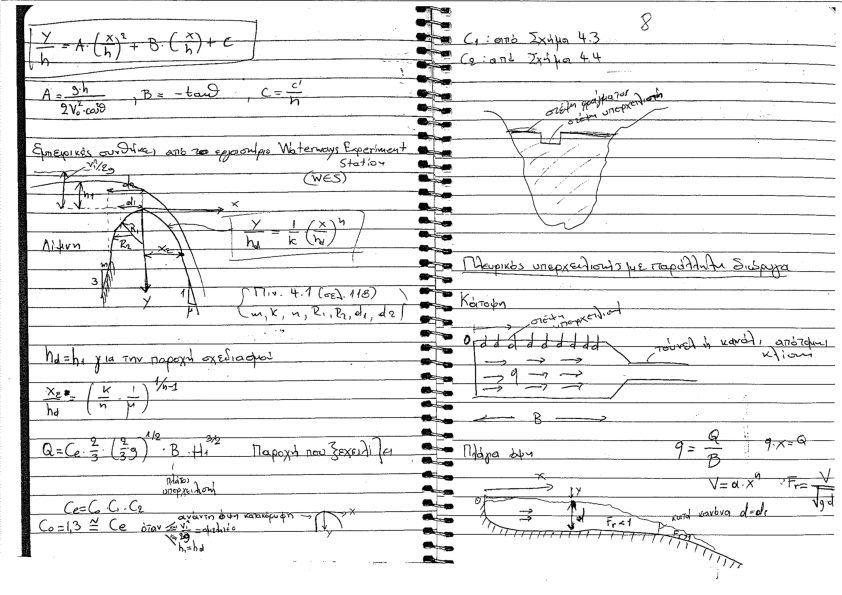 y/h = A·(x/h)² + B·(x/h) + C
A = g·h / 2V₀²·cosθ , B = -tanθ , C = c'/h
Εμπειρικές συνθήκες από το εργαστήριο Waterways Experiment
Station
(WES)
V₁²/2g
h₁
d₂
d₁
x
R₁
R₂
x₂
Λίμνη
m
3
y
1
μ
y/hd = 1/k (x/hd)ⁿ
Πιν. 4.1 (σελ. 118)
m, k, n, R₁, R₂, d₁, d₂
hd = h₁ για την παροχή σχεδιασμού
x₂/hd = (k/n · 1/μ)^1/n-1
Q = Ce · 2/3 · (2/3 g)^1/2 · B · H₁^3/2 Παροχή που ξεχειλίζει
πλάτος
υπερχειλιστή
Ce = C₀ · C₁ · C₂
C₀ = 1,3 ≅ Ce όταν ανάντη όψη κατακόρυφη
V₁²/2g = αμελητέο
h₁ = hd
x
y
8
C₁ : από Σχήμα 4.3
C₂ : από Σχήμα 4.4
στέψη φράγματος
στέψη υπερχειλιστή
Πλευρικός υπερχειλιστής με παράλληλη διώρυγα
Κάτοψη
στέψη
υπερχειλιστή
0
τούνελ ή κανάλι απότομη
κλίση
q
B
Πλάγια όψη
q = Q/B q·x = Q
V = α·xⁿ Fr = V/√gd
x
0
y
d
Fr<1
κατά κανόνα d=dc
Fr>1